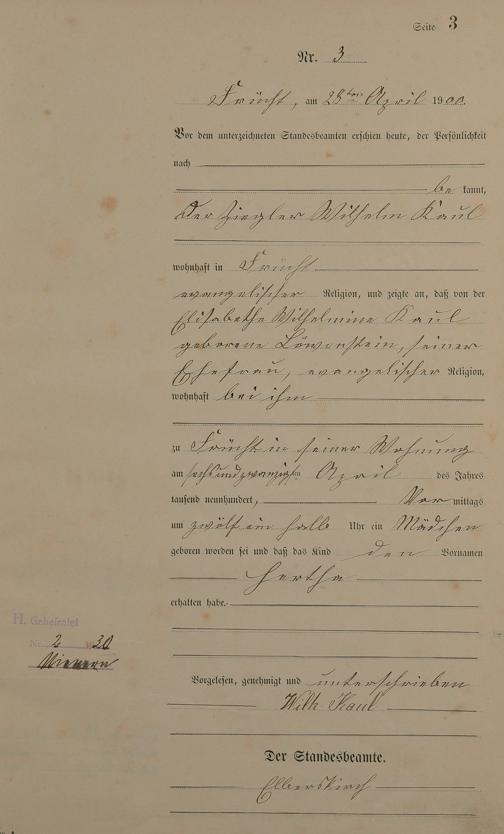 Seite 3
Nr. 3
Frücht, am 28ten April 1900.
Vor dem unterzeichneten Standesbeamten erschien heute, der Persönlichkeit
nach
be kannt,
Der Ziegler Wilhelm Kaul
wohnhaft in Frücht
evangelischer Religion, und zeigte an, daß von der
Elisabethe Wilhelmine Kaul
geborene Löwenstein, seiner
Ehefrau, evangelischer Religion,
wohnhaft bei ihm
zu Frücht in seiner Wohnung
am sechsundzwanzigsten April des Jahres
tausend neunhundert, Vor mittags
um zwölf ein halb Uhr ein Mädchen
geboren worden sei und daß das Kind den Vornamen
Hertha
erhalten habe.
H. Geheiratet
Nr. 2 1930
Nievern
Vorgelesen, genehmigt und unterschrieben
Wilh Kaul
Der Standesbeamte.
Elberskirch